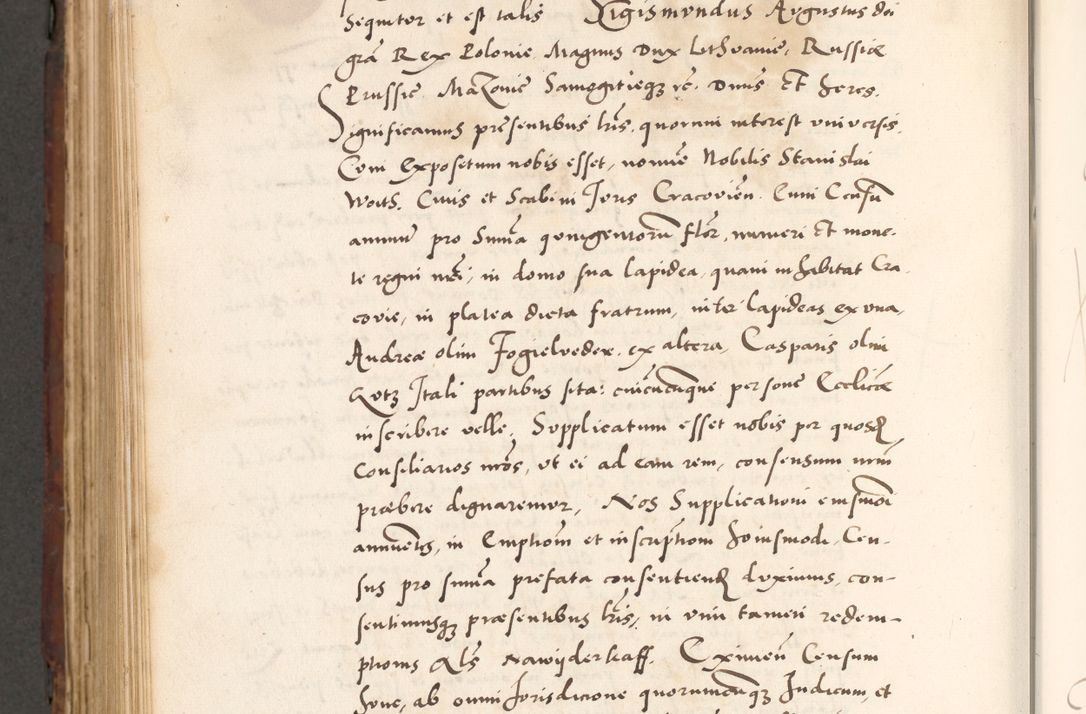 Sequitur et est talis Sigismundus Augustus dei
gra Rex Polonie Magnus Dux Lithvanie, Russiæ
Prussie Mazovie Samogitieqz rc. Dnus Et heres.
Significamus presentibus lris, quorum interest universis.
Cum Expositum nobis esset, nomine Nobilis Stanislai
Civis et Scabini Juris Cracovien. Eum Censu
annuu pro Suma quingentoru flor, numeri Et mone-
te regni nri, in domo sua lapidea, quam inhabitat Cra-
covie, in platea dicta fratrum, inter lapideas ex una,
Andreæ olim Fogielveder, ex altera, Casparis olim
Gutz Itali partibus sita: cuicunque persone Ecclicæ
inscribere velle, Supplicatum esset nobis per quosd
Consiliarios nros, ut ei ad eam rem, consensum nrm
præbere dignaremur, Nos Supplicationi eiusmodi
annuentes, in Emptiom et inscriptiom hoiusmodi, Cen-
sus pro suma prefata consentiend duximus, con-
sentimusqz præsentibus lris, in vim tamen redem-
ptionis als nawijderkaff. Eximen Censum
hunc, ab omni Jurisdicione quorumcuqz Judicum, et